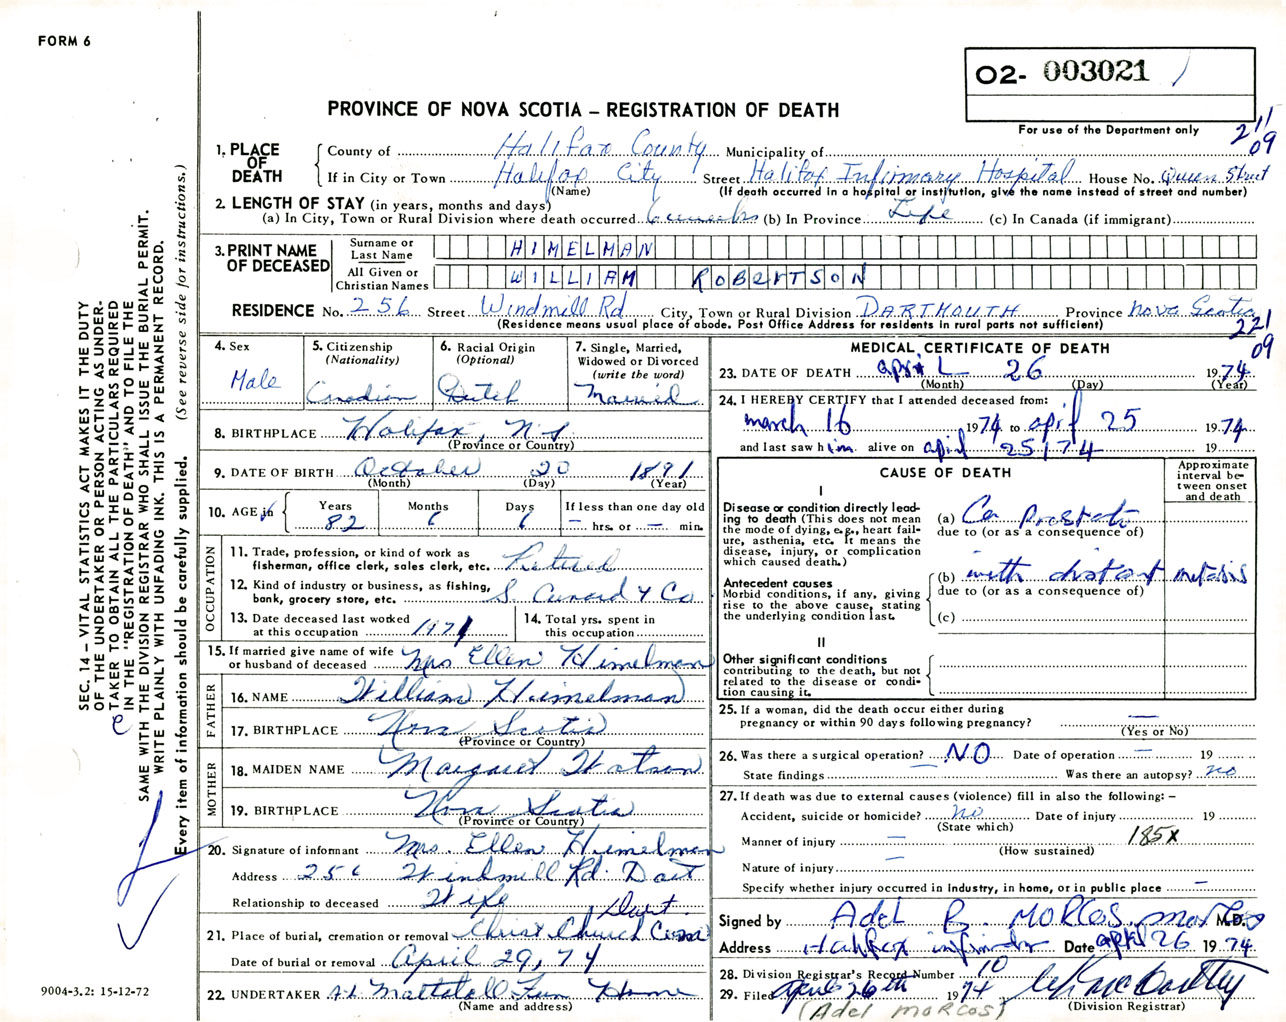 FORM 6
O2- 003021
For use of the Department only
211
09
PROVINCE OF NOVA SCOTIA – REGISTRATION OF DEATH
1. PLACE OF DEATH
County of Halifax County Municipality of
If in City or Town Halifax City Street Halifax Infirmary Hospital House No. Queen Street
(Name) (If death occurred in a hospital or institution, give the name instead of street and number)
2. LENGTH OF STAY (in years, months and days)
(a) In City, Town or Rural Division where death occurred 6 weeks (b) In Province Life (c) In Canada (if immigrant)
3. PRINT NAME OF DECEASED
Surname or Last Name HIMELMAN
All Given or Christian Names WILLIAM ROBERTSON
RESIDENCE No. 256 Street Windmill Rd City, Town or Rural Division DARTMOUTH Province Nova Scotia
(Residence means usual place of abode. Post Office Address for residents in rural parts not sufficient)
221
09
4. Sex
Male
5. Citizenship
(Nationality)
Canadian
6. Racial Origin
(Optional)
Dutch
7. Single, Married,
Widowed or Divorced
(write the word)
Married
8. BIRTHPLACE Halifax, N.S
(Province or Country)
9. DATE OF BIRTH October 20 1891
(Month) (Day) (Year)
10. AGE
Years Months Days If less than one day old
82 6 6 – hrs. or – min.
OCCUPATION
11. Trade, profession, or kind of work as
fisherman, office clerk, sales clerk, etc. Retired
12. Kind of industry or business, as fishing,
bank, grocery store, etc. S. Cunard & Co
13. Date deceased last worked
at this occupation 1971
14. Total yrs. spent in
this occupation
15. If married give name of wife
or husband of deceased Mrs Ellen Himelman
FATHER
16. NAME William Himelman
17. BIRTHPLACE Nova Scotia
(Province or Country)
MOTHER
18. MAIDEN NAME Margaret Watson
19. BIRTHPLACE Nova Scotia
(Province or Country)
20. Signature of informant Mrs. Ellen Himelman
Address 256 Windmill Rd. Dart
Relationship to deceased Wife
Dart.
21. Place of burial, cremation or removal Christ Church Cem
Date of burial or removal April 29, 74
22. UNDERTAKER Mattatall Fun Home
(Name and address)
MEDICAL CERTIFICATE OF DEATH
23. DATE OF DEATH April 26 1974
(Month) (Day) (Year)
24. I HEREBY CERTIFY that I attended deceased from:
march 16 1974 to april 25 1974
and last saw him alive on april 25/74 19
CAUSE OF DEATH
Approximate
interval be-
tween onset
and death
I
Disease or condition directly lead-
ing to death (This does not mean
the mode of dying, e.g., heart fail-
ure, asthenia, etc. It means the
disease, injury, or complication
which caused death.)
(a) Ca Prostate
due to (or as a consequence of)
Antecedent causes
Morbid conditions, if any, giving
rise to the above cause, stating
the underlying condition last.
(b) with distant metasis
due to (or as a consequence of)
(c)
II
Other significant conditions
contributing to the death, but not
related to the disease or condi-
tion causing it.
25. If a woman, did the death occur either during
pregnancy or within 90 days following pregnancy? —
(Yes or No)
26. Was there a surgical operation? NO Date of operation — 19
State findings — Was there an autopsy? no
27. If death was due to external causes (violence) fill in also the following: –
Accident, suicide or homicide? No Date of injury 19
(State which)
Manner of injury — 185X
(How sustained)
Nature of injury —
Specify whether injury occurred in Industry, in home, or in public place —
Signed by Adel R. MORCOS M.D.
Address Halifax infirmary Date april 26 1974
28. Division Registrar's Record Number 10
29. Filed April 26th 1974
(Division Registrar)
(Adel MORCOS)
SEC. 14 – VITAL STATISTICS ACT MAKES IT THE DUTY
OF THE UNDERTAKER OR PERSON ACTING AS UNDER-
TAKER TO OBTAIN ALL THE PARTICULARS REQUIRED
IN THE "REGISTRATION OF DEATH" AND TO FILE THE
SAME WITH THE DIVISION REGISTRAR WHO SHALL ISSUE THE BURIAL PERMIT.
WRITE PLAINLY WITH UNFADING INK. THIS IS A PERMANENT RECORD.
Every item of information should be carefully supplied. (See reverse side for instructions.)
9004-3.2: 15-12-72